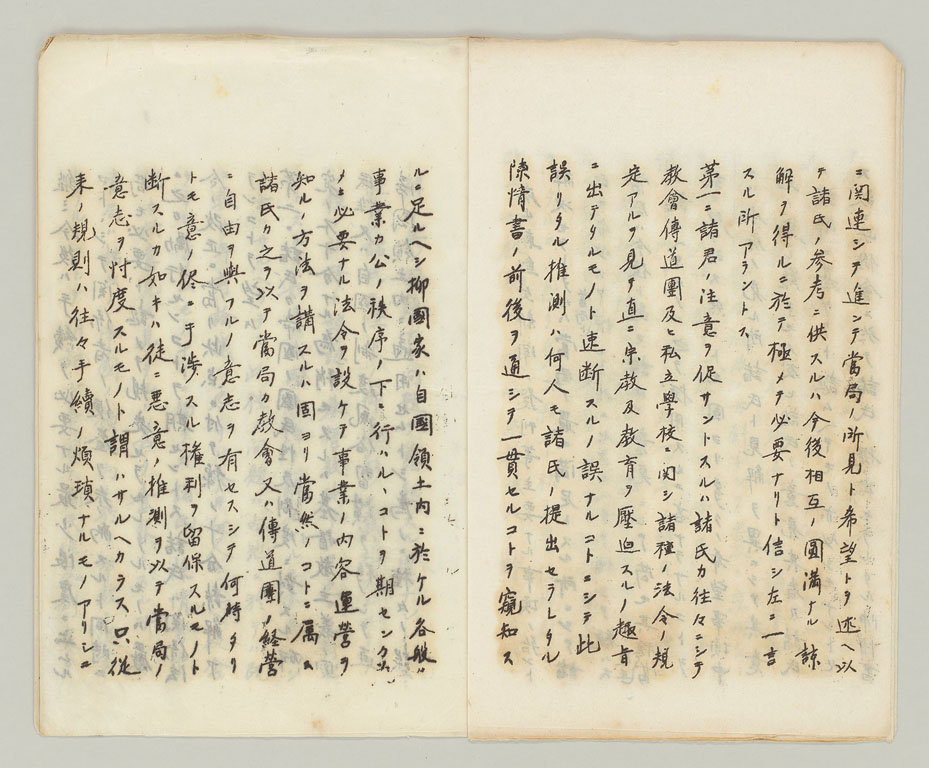 ニ関連シテ進ンテ當局ノ所見ト希望トヲ述ヘ以
テ諸氏ノ参考ニ供スルハ今後相互ノ圓滿ナル諒
解ヲ得ルニ於テ極メテ必要ナリト信シ左ニ一言
スル所アラントス
第一ニ諸君ノ注意ヲ促サントスルハ諸氏カ往々ニシテ
教會傳道團及ヒ私立學校ニ関シ諸種ノ法令ノ規
定アルヲ見テ直ニ宗教及教育ヲ壓迫スルノ趣旨
ニ出テタルモノト速断スルノ誤ナルコトニシテ此
誤リタル推測ハ何人モ諸氏ノ提出セラレタル
陳情書ノ前後ヲ通シテ一貫セルコトヲ窺知ス
ルニ足ルヘシ抑國家ハ自國領土内ニ於ケル各般ノ
事業カ公ノ秩序ノ下ニ行ハルヽコトヲ期センカ為
メニ必要ナル法令ヲ設ケテ事業ノ内容運營ヲ
知ルノ方法ヲ講スルハ固ヨリ當然ノコトニ属ス
諸氏カ之ヲ以テ當局カ教會又ハ傳道團ノ経営
ニ自由ヲ與フルノ意志ヲ有セスシテ何時タリ
トモ意ノ侭ニ干渉スル権利ヲ留保スルモノト
断スルカ如キハ徒ニ悪意ノ推測ヲ以テ當局ノ
意志ヲ忖度スルモノト謂ハサルヘカラス只従
来ノ規則ハ往々手續ノ煩瑣ナルモノアリシニ